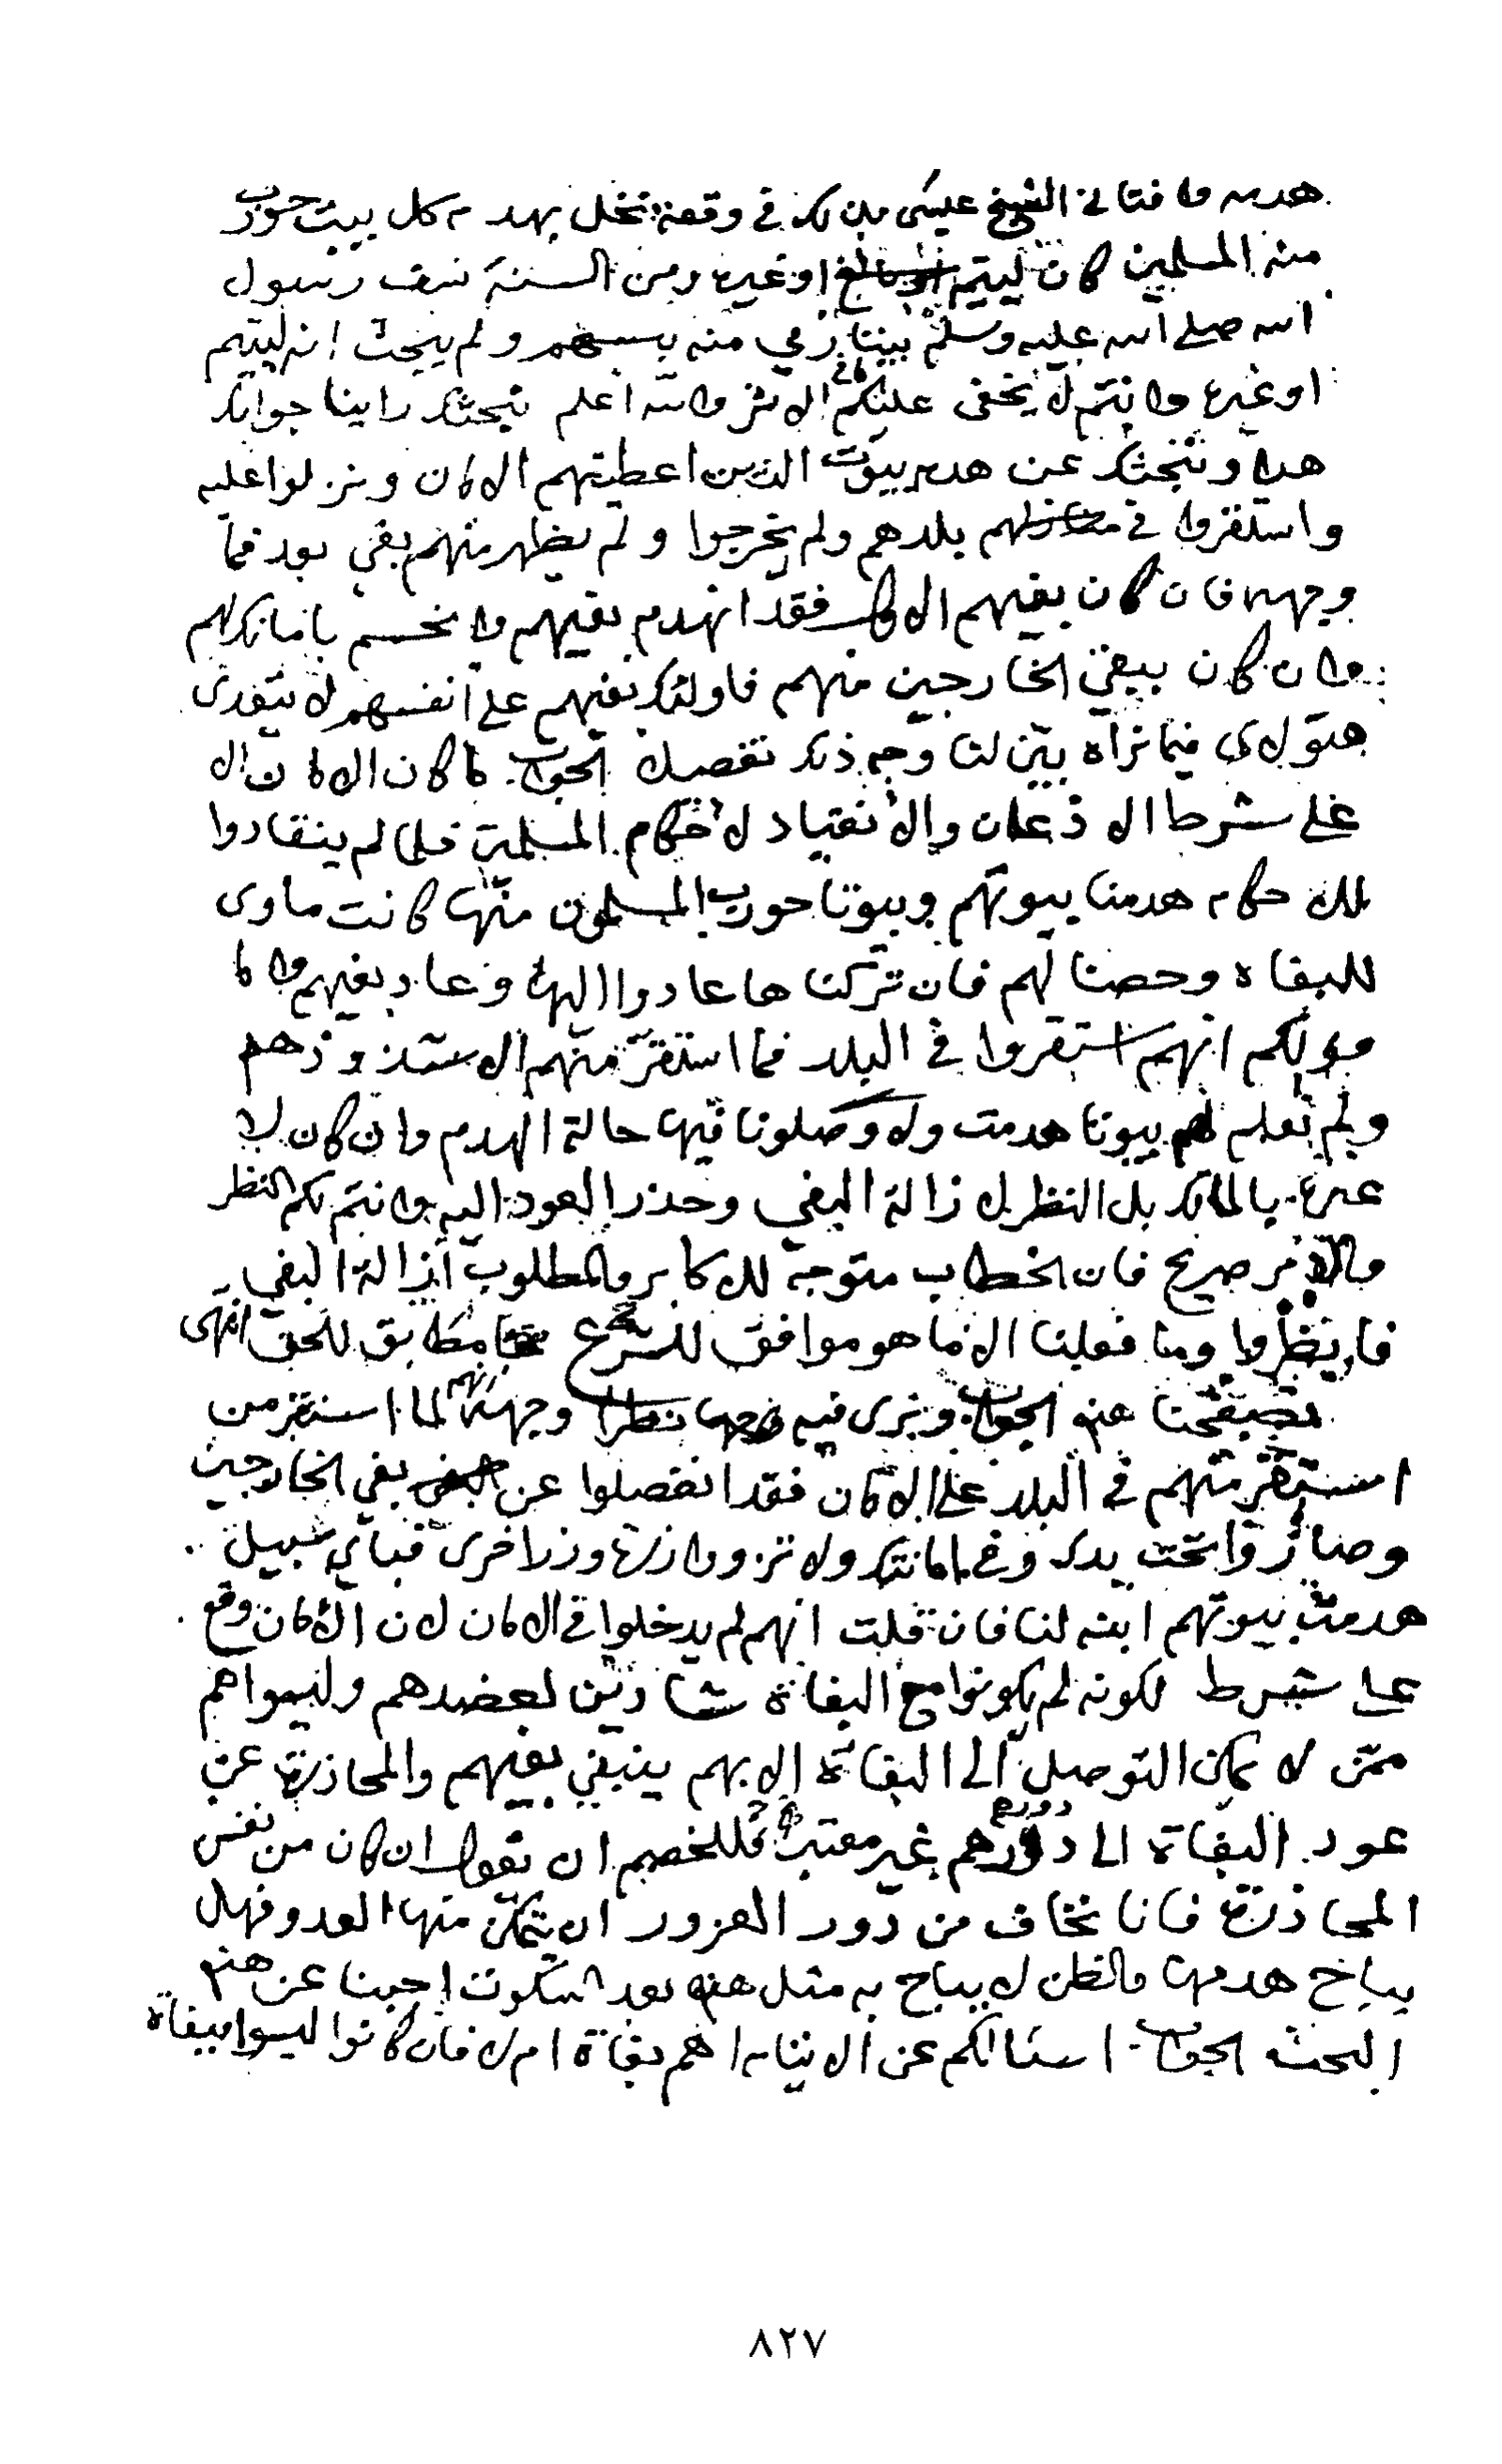 هدمه وافتاني الشيخ عيسى بذلك في وقعة نخل بهدم كل بيت حورب
منه المسلمين كان ليتيم او غيره ومن السنة نسف رسول
الله صلى الله عليه وسلم بيتا رمي منه بسهم ولم يبحث انه ليتيم
او غيره وانتم لا يخفى عليكم ما في الاثر والله اعلم نبحثك راينا جوابك
هذا ونبحثك عن هدم بيوت الذين اعطيتهم الامان ونزلوا عليه
واستقروا في منازلهم بلدهم ولم يخرجوا ولم يظهر منهم بغي بعد فما
وجهه فان كان بغيهم الاول فقد انهدم بغيهم وانحسم بامانك لهم
وان كان ببغي الخارجين منهم فاولئك بغيهم على انفسهم لا يتعدى
هؤلاء فيما نراه بين لنا وجه ذلك تفصيلا الجواب لما كان الامان
على شرط الاذعان والانقياد لاحكام المسلمين فلما لم ينقادوا
للاحكام هدمنا بيوتهم وبيوتا حورب المسلمون منها كانت ماوى
للبغاة وحصنا لهم فان تركناها عادوا اليها وعاد بغيهم واما
قولكم انهم استقروا في البلد فما استقر منهم الا شذوذهم
ولم نعلم لهم بيوتا هدمت ولا وصلونا فيها حالة الهدم وان كان لا
عبرة بالمالك بل النظر لازالة البغي وحذر العود اليه وانتم لكم النظر
والامر صريح فان الخطاب متوجه للاكابر والمطلوب ازالة البغي
فانظروا وما فعلنا الا ما هو موافق للشرع مطابق للحق انتهى
تصفحنا هذا الجواب ونرى فيه نظرا وجهه انهم لما استقر من
استقر منهم في البلد على الامان فقد انفصلوا عن بغي الخارجين
وصاروا تحت يدك وفي امانتك ولا تزر وازرة وزر اخرى فباي سبيل
هدمت بيوتهم ابنه لنا فان قلت انهم لم يدخلوا في الامان لان الامان وقع
على شرط لكونه لم يكونوا مع البغاة شادين لعضدهم وليسوا هم
ممن لا يمكن التوصل الى البغاة الا بهم ينبغي بغيهم والمحاذرة عن
عود البغاة الى دورهم غير معتبرة فللخصم ان يقول ان كان من نفس
المحاذرة فانا نخاف من دور الغرور ان يتمكن منها العدو فهل
يباح هدمها والظن لا يباح به مثل هذا بعد السكوت اجبنا عن هذا
البحث الجواب اسئالكم عن الابناء اهم بغاة ام لا فان كانوا ليسوا ببغاة
٨٢٧